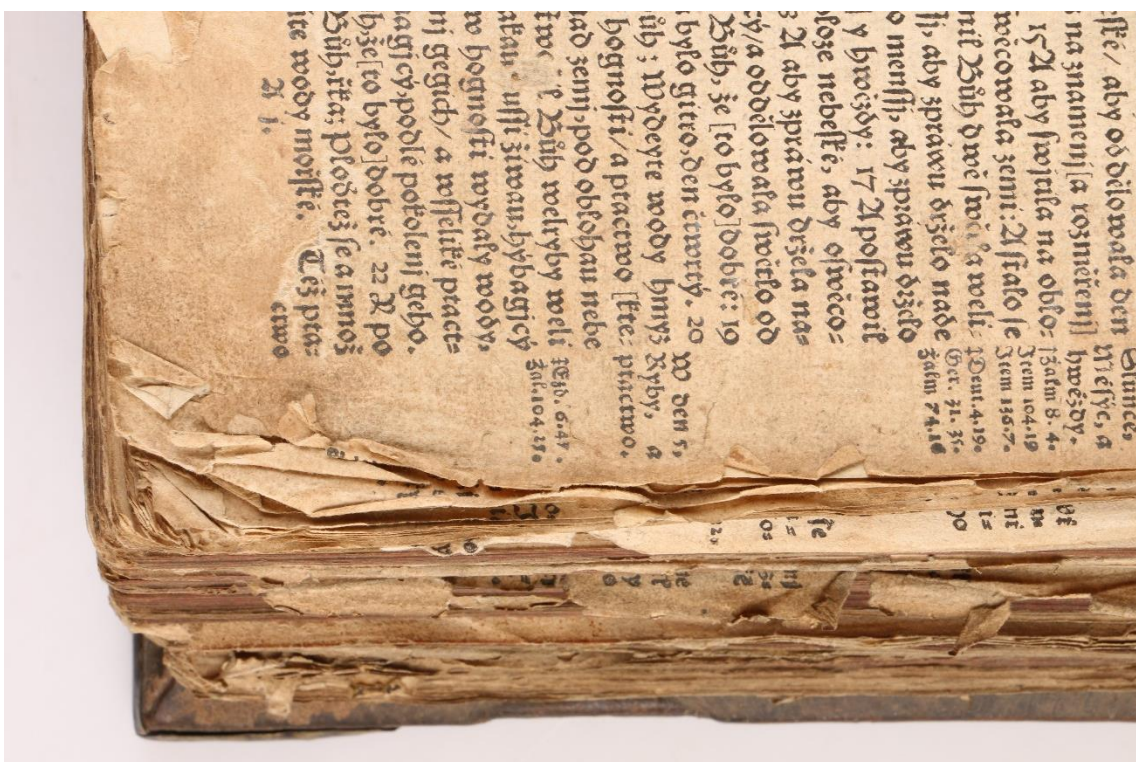 eſké / aby oddělowala den
na znamenj[a rozměřenj]
15 A aby ſwjtila na oblo:
ſwěcowala zemi: A ſtalo ſe
nil Bůh dwě ſwětla weli:
ſſj, aby zpráwu drželo nade
o menſſj, aby zpráwu drželo
y hwězdy: 17 A poſtawil
oloze nebeſké, aby oſwěco=
z A aby zpráwu držela na=
cý / a oddělowala ſwětlo od
Bůh, že [to bylo] dobré: 19
a bylo gitro, den čtwrtý. 20
ůh: Wydeyte wody hmyz
hognoſti / a ptactwo [kře:
nad zemj, pod oblohau nebe
Bůh welryby weli
žiwau, hybagjcý
w hognoſti wydaly wody,
nj gegich / a wſſeliké ptact=
agjcý podlé pokolenj geho.
h, že [to bylo] dobré. 22 R po
Bůh, řka; Ploďtež ſe a množ
te wody mořſké. Též pta=
A j. ctwo
Slunce,
Měſýc, a
hwězdy.
Žalm 8. 4.
Item 104.19
Item 136.7.
Deut 4.19.
Ger. 31. 35.
Žalm 74.16
W den 5,
Ryby, a
ptactwo.
Ezd. 6.47.
Žal. 104.25.